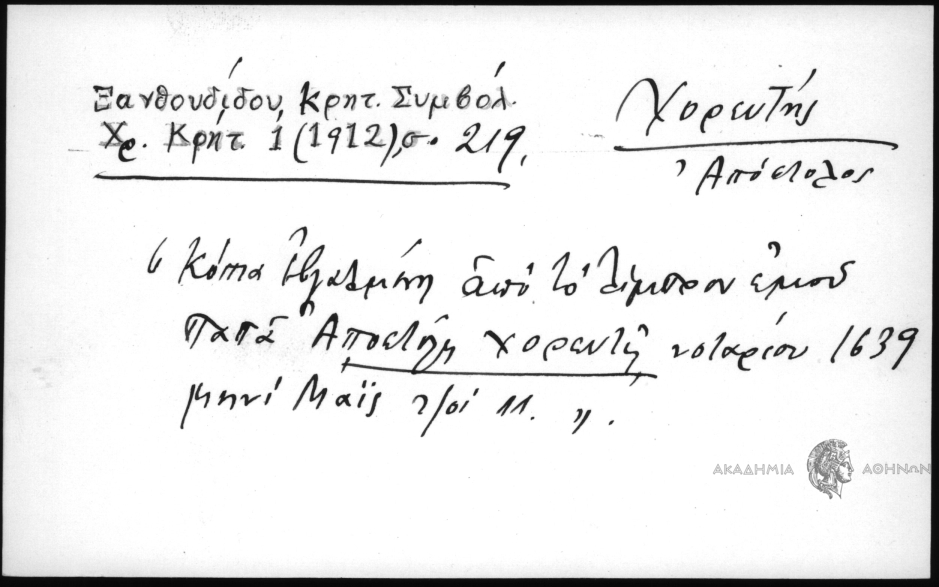 Ξανθουδίδου, Κρητ. Συμβόλ.
Χρ. Κρήτ. 1 (1912), σ. 219.
Χορευτής
Ἀπόστολος
“ Κόπια ἐβγαλμένη ἀπὸ τὸ τίμπρον ἐμοῦ
παπᾶ Ἀποστόλη Χορευτῆ νοταρίου 1639
μηνὶ Μαΐς 11. ”.
ΑΚΑΔΗΜΙΑ ΑΘΗΝΩΝ